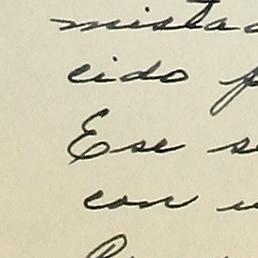 mistad
cido p
Ese se
con u